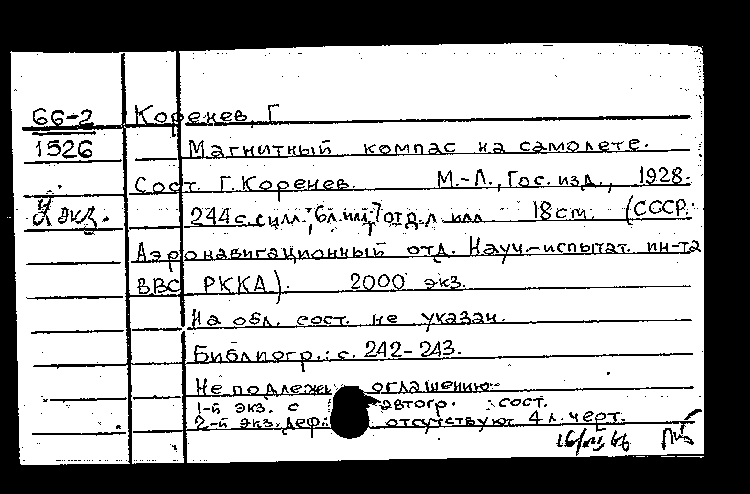 66-2 Коренев, Г
1526 Магнитный компас на самолете.
Сост. Г. Коренев. М.-Л., Гос. изд., 1928.
2 экз. 244 с. с илл., 6 л. илл., 7 отд. л илл. 18 см. (СССР.
Аэронавигационный отд. Науч-испытат. ин-та
ВВС РККА). 2000 экз.
На обл. сост. не указан.
Библиогр.: с. 242-243.
Не подлежит оглашению
1-й экз. с автогр. сост.
2-й экз. деф.: отсутствуют 4 л. черт.